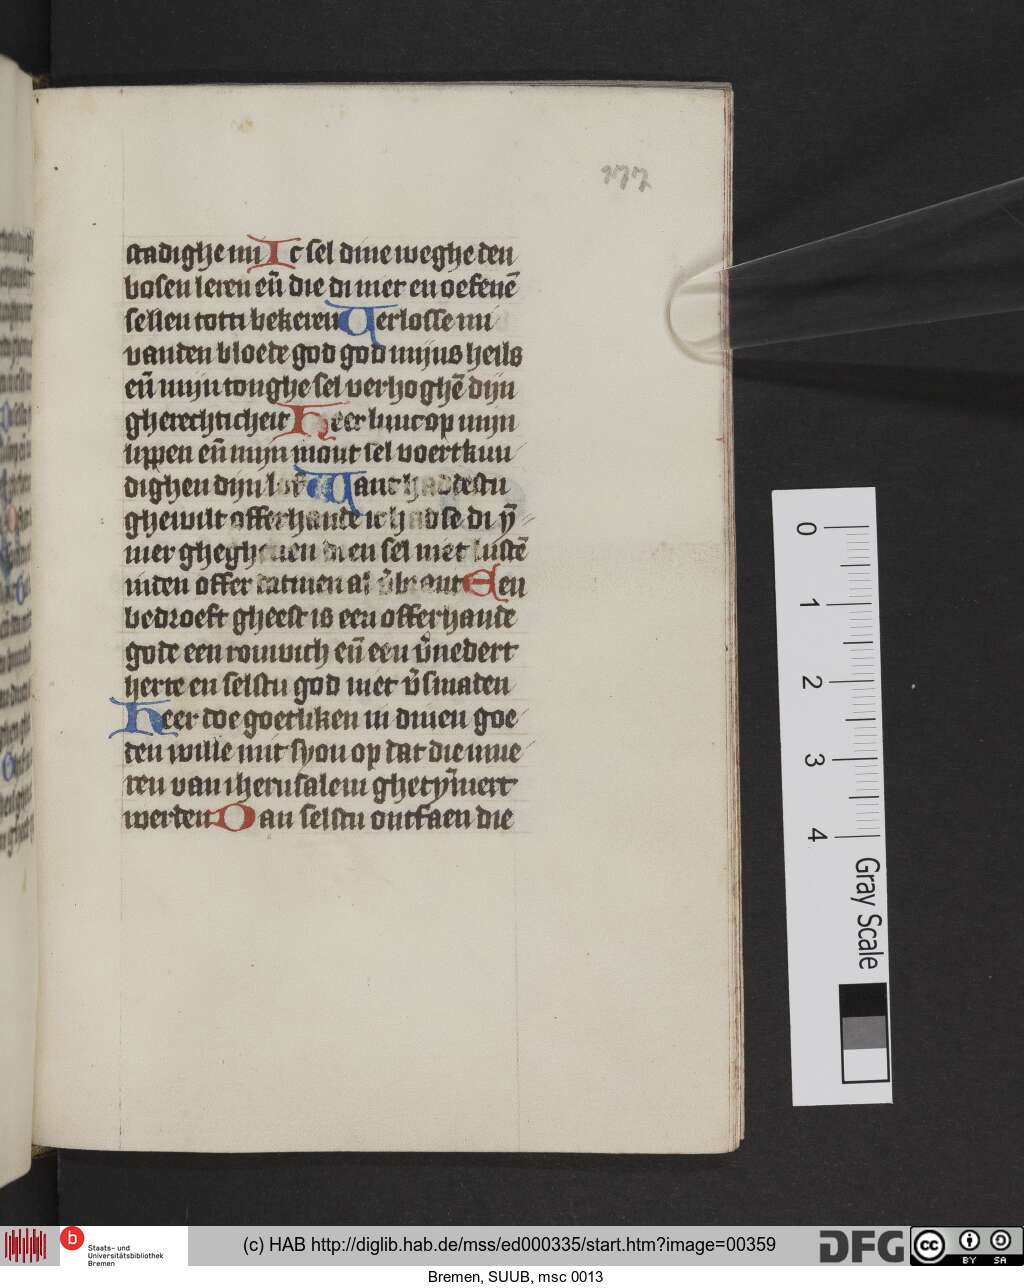 177
stadighe mi Ic sel dine weghe den
bosen leren en̄ die di niet en oefenē
sellen totti bekeren Verlosse mi
vanden bloede god god mijns heils
en̄ mijn tonghe sel verhoghē dijn
gherechticheit Heer luuc op mijn
lippen en̄ mijn mont sel voertkun
dighen dijn lof Want haddestu
ghewilt offerhande ic hadse di ȳ
mer ghegheuen dien sel niet lustē
inden offer datmen al v̄brant Een
bedroeft gheest is een offerhande
gode een rouwich en̄ een v̄nedert
herte en selstu god niet v̄smaden
Heer doe goetliken in dinen goe
den wille mit syon op dat die mue
ren van iherusalem ghetȳmert
werden Dan selstu ontfaen die
0
1
2
3
4
Gray Scale
b
Staats- und
Universitätsbibliothek
Bremen
(c) HAB http://diglib.hab.de/mss/ed000335/start.htm?image=00359
DFG
cc
BY
SA
Bremen, SUUB, msc 0013